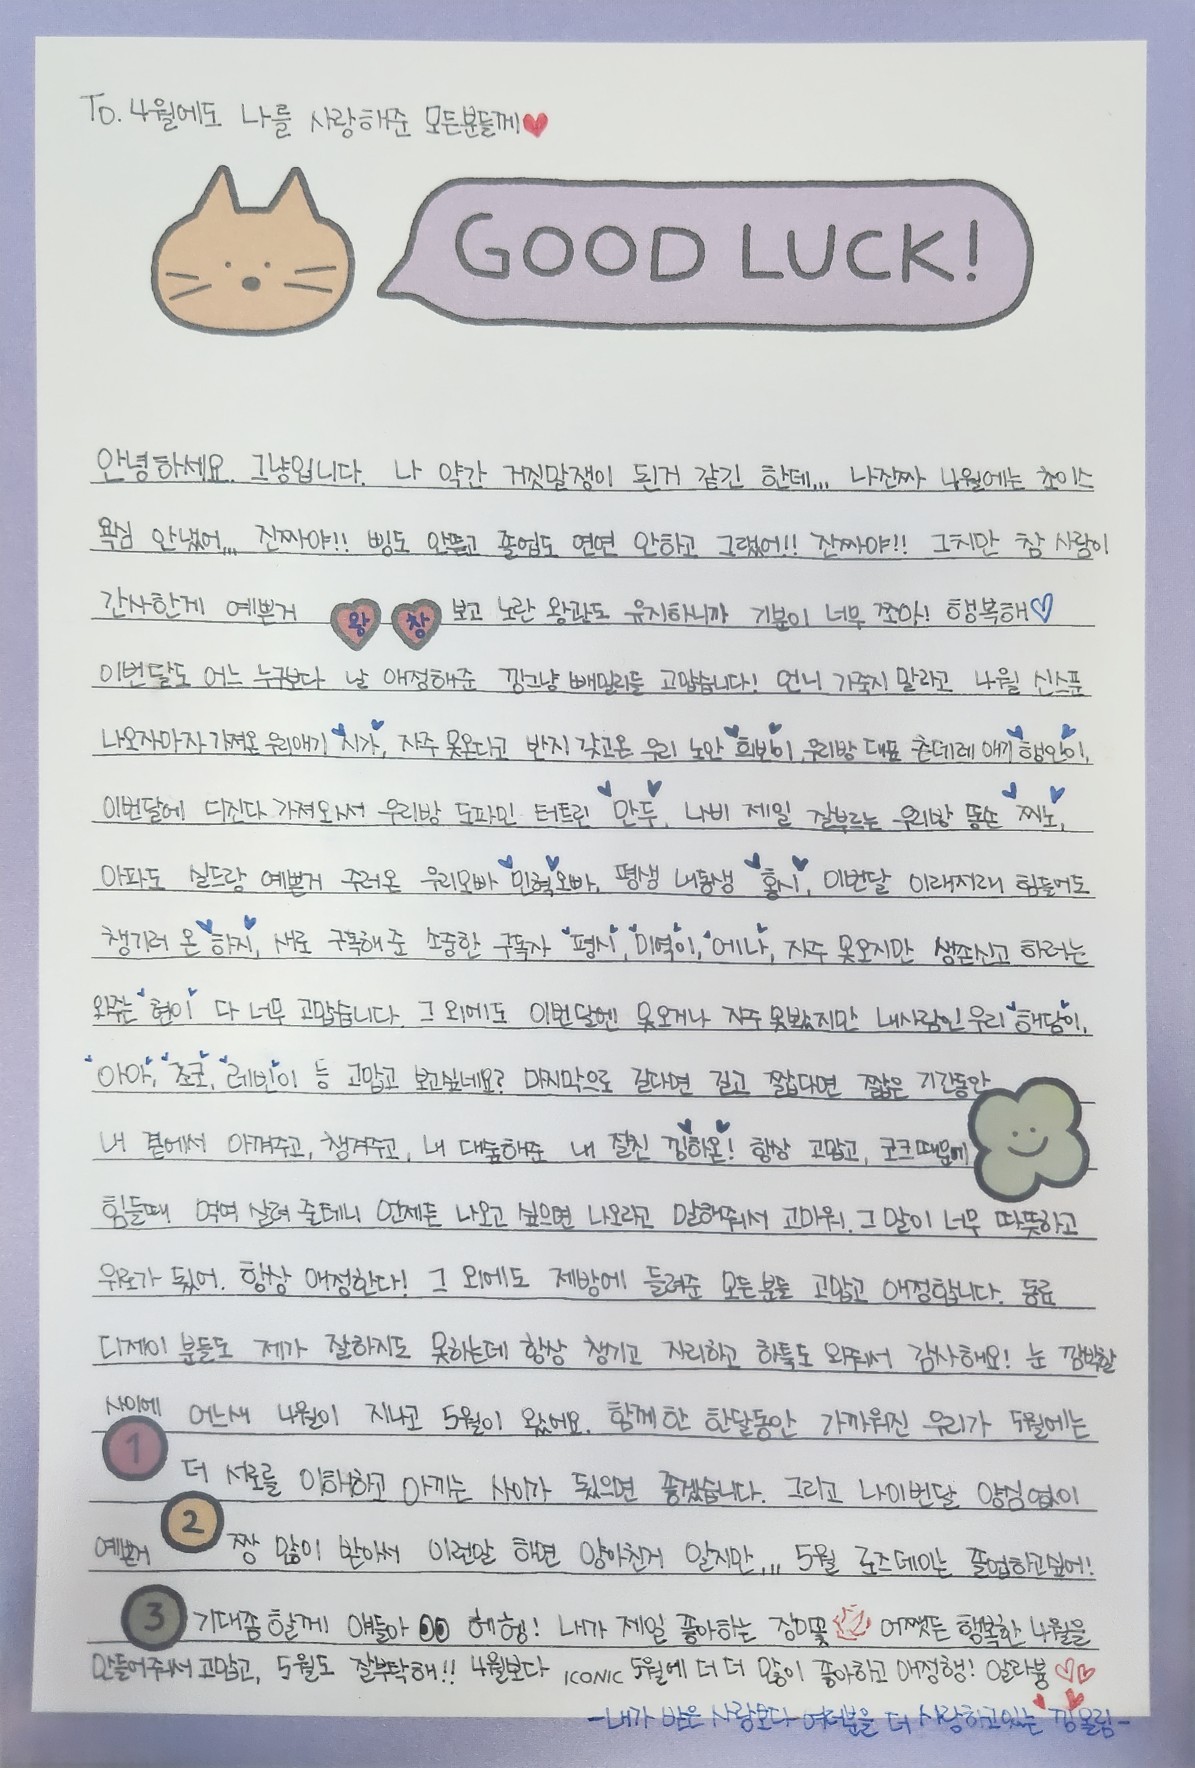 To. 4월에도 나를 사랑해준 모든분들께
GOOD LUCK!
안녕하세요. 그냥입니다. 나 약간 거짓말쟁이 된거 같긴 한데,,, 나진짜 4월에는 초이스
욕심 안냈어,,, 진짜야!! 삥도 안뜯고 졸업도 연연 안하고 그랬어!! 진짜야!! 그치만 참 사람이
간사한게 예쁜거 왕 창 보고 노란 왕관도 유지하니까 기분이 너무 쪼아! 행복해
이번달도 어느 누구보다 날 애정해준 낑그냥 빼밀리들 고맙습니다! 언니 기죽지 말라고 4월 신스푼
나오자마자 가져온 우리애기 "시가", 자주 못온다고 반지 갖고온 우리 노안 "희빈"이, 우리방 대표 츤데레 애기 "행인"이,
이번달에 디진다 가져와서 우리방 도파민 터트린 "만두", 나비 제일 잘부르는 우리방 똥손 "찌노",
아파도 실드랑 예쁜거 주러온 우리오빠 "민혁"오빠, 평생 내동생 "홍시", 이번달 이래저래 힘들어도
챙기러 온 "하지", 새로 구독해 준 소중한 구독자 "평시", "미역"이, "에나", 자주 못오지만 생존신고 하러는
와주는 "현이" 다 너무 고맙습니다. 그 외에도 이번달엔 못오거나 자주 못봤지만 내사람인 우리 "해담"이,
"아야", "초코", "레빈"이 등 고맙고 보고싶네요? 마지막으로 길다면 길고 짧다면 짧은 기간동안
내 곁에서 아껴주고, 챙겨주고, 내 대숲해준 내 절친 "낑하온"! 항상 고맙고, 코크때문에
힘들때 업어 살려 줄테니 언제든 나오고 싶으면 나오라고 말해줘서 고마워! 그 말이 너무 따뜻하고
위로가 됬어. 항상 애정한다! 그 외에도 제방에 들려준 모든분들 고맙고 애정합니다. 동료
디제이 분들도 제가 잘하지도 못하는데 항상 챙기고 자리하고 하트도 와줘서 감사해요! 눈 깜박할
사이에 어느새 4월이 지나고 5월이 왔어요. 함께한 한달동안 가까워진 우리가 5월에는
1 더 서로를 이해하고 아끼는 사이가 됬으면 좋겠습니다. 그리고 나이번달 양심없이
예쁜거 2 짱 많이 받아서 이런말 하면 양아친거 알지만,,, 5월 로즈데이는 졸업하고싶어!
3 기대좀 할게 얘들아 헤헿! 내가 제일 좋아하는 장미꽃 어쨋든 행복한 4월을
만들어주셔서 고맙고, 5월도 잘부탁해!! 4월보다 ICONIC 5월에 더 더 많이 좋아하고 애정행! 알라븅
-내가 받은 사랑보다 여러분을 더 사랑하고있는 낑올림-